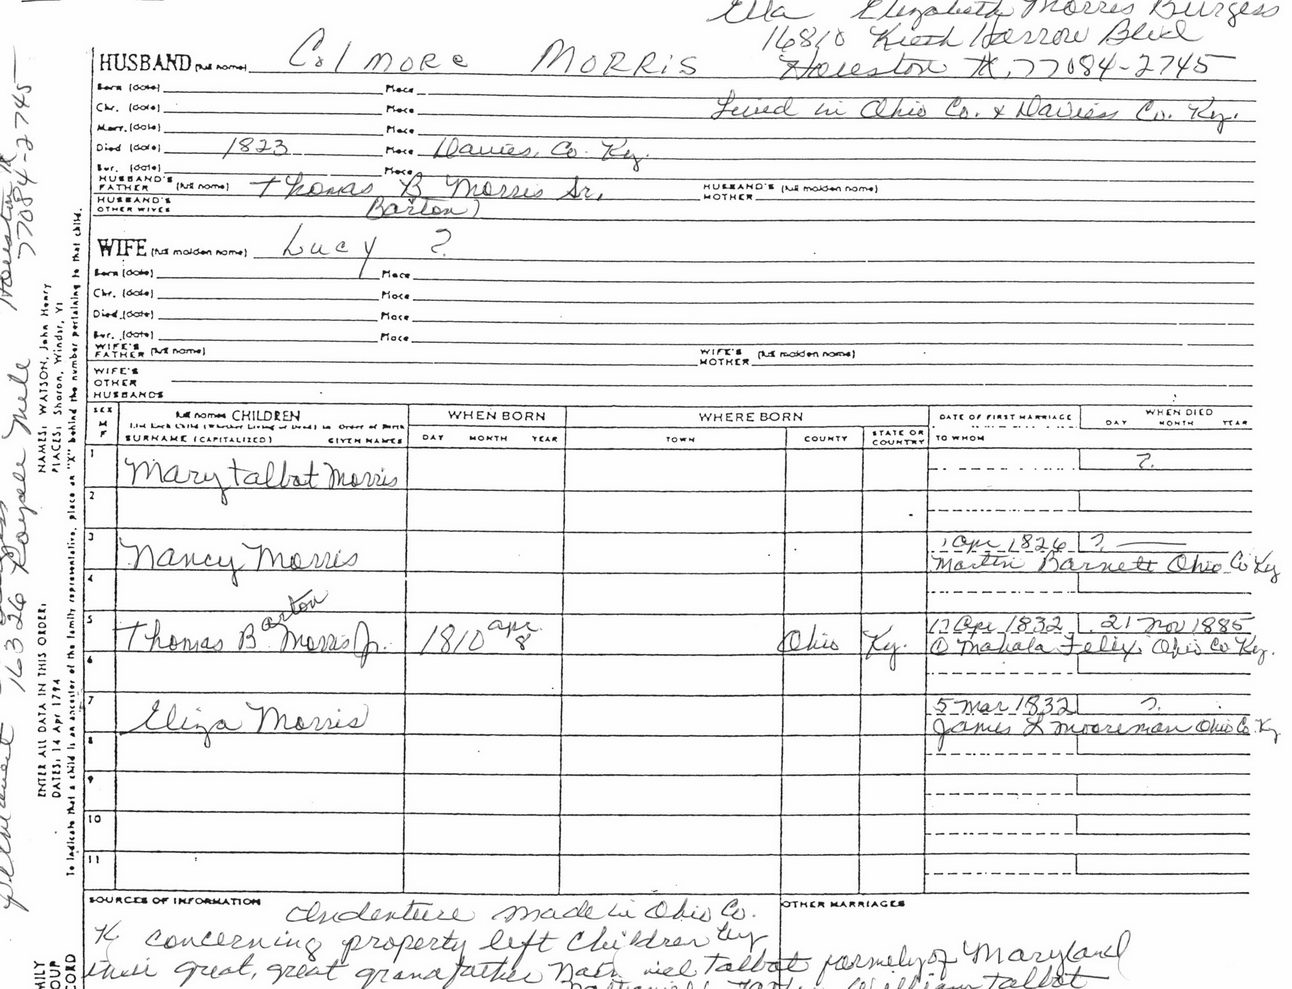 Ella Elizabeth Morris Burgess
16810 Kieth Harrow Blvd
Houston TX, 77084-2745
HUSBAND (full name) Colmore MORRIS
Born (date) Place
Lived in Ohio Co. & Daviess Co. Ky.
Chr. (date) Place
Marr. (date) Place
Died (date) 1823 Place Davies. Co. Ky.
Bur. (date) Place
HUSBAND'S FATHER (full name) Thomas B Morris Sr. HUSBAND'S MOTHER (full maiden name)
HUSBAND'S OTHER WIVES Barton)
WIFE (full maiden name) Lucy ?
Born (date) Place
Chr. (date) Place
Died (date) Place
Bur. (date) Place
WIFE'S FATHER (full name) WIFE'S MOTHER (full maiden name)
WIFE'S OTHER HUSBANDS
SEX M F full names CHILDREN WHEN BORN WHERE BORN DATE OF FIRST MARRIAGE WHEN DIED
List Each Child (Whether Living or Dead) in Order of Birth DAY MONTH YEAR
SURNAME (CAPITALIZED) GIVEN NAMES DAY MONTH YEAR TOWN COUNTY STATE OR COUNTRY TO WHOM
1 Mary Talbot Morris ?
2
3 Nancy Morris 1 Apr 1826 ?
Martin Barnett Ohio Co Ky
4
5 Thomas B arton Morris Jr. 1810 Apr. 8 Ohio Ky. 17 Apr 1832 21 Nov 1885
① Mahala Felix, Ohio Co Ky.
6
7 Eliza Morris 5 Mar 1832 ?
James L Mooreman Ohio Co. Ky
8
9
10
11
SOURCES OF INFORMATION OTHER MARRIAGES
Indenture made in Ohio Co.
K concerning property left Children by
their great, great grandfather Talbot formely of Maryland
William Talbot
16326 Houston TX
77084-2745
NAMES: WATSON, John Henry
PLACES: Sharon, Windsr, Vt
ENTER ALL DATA IN THIS ORDER:
DATES: 14 Apr 1794
To indicate that a child is an ancestor of the family representative, place an "X" behind the number pertaining to that child.
MILY
OUP
CORD